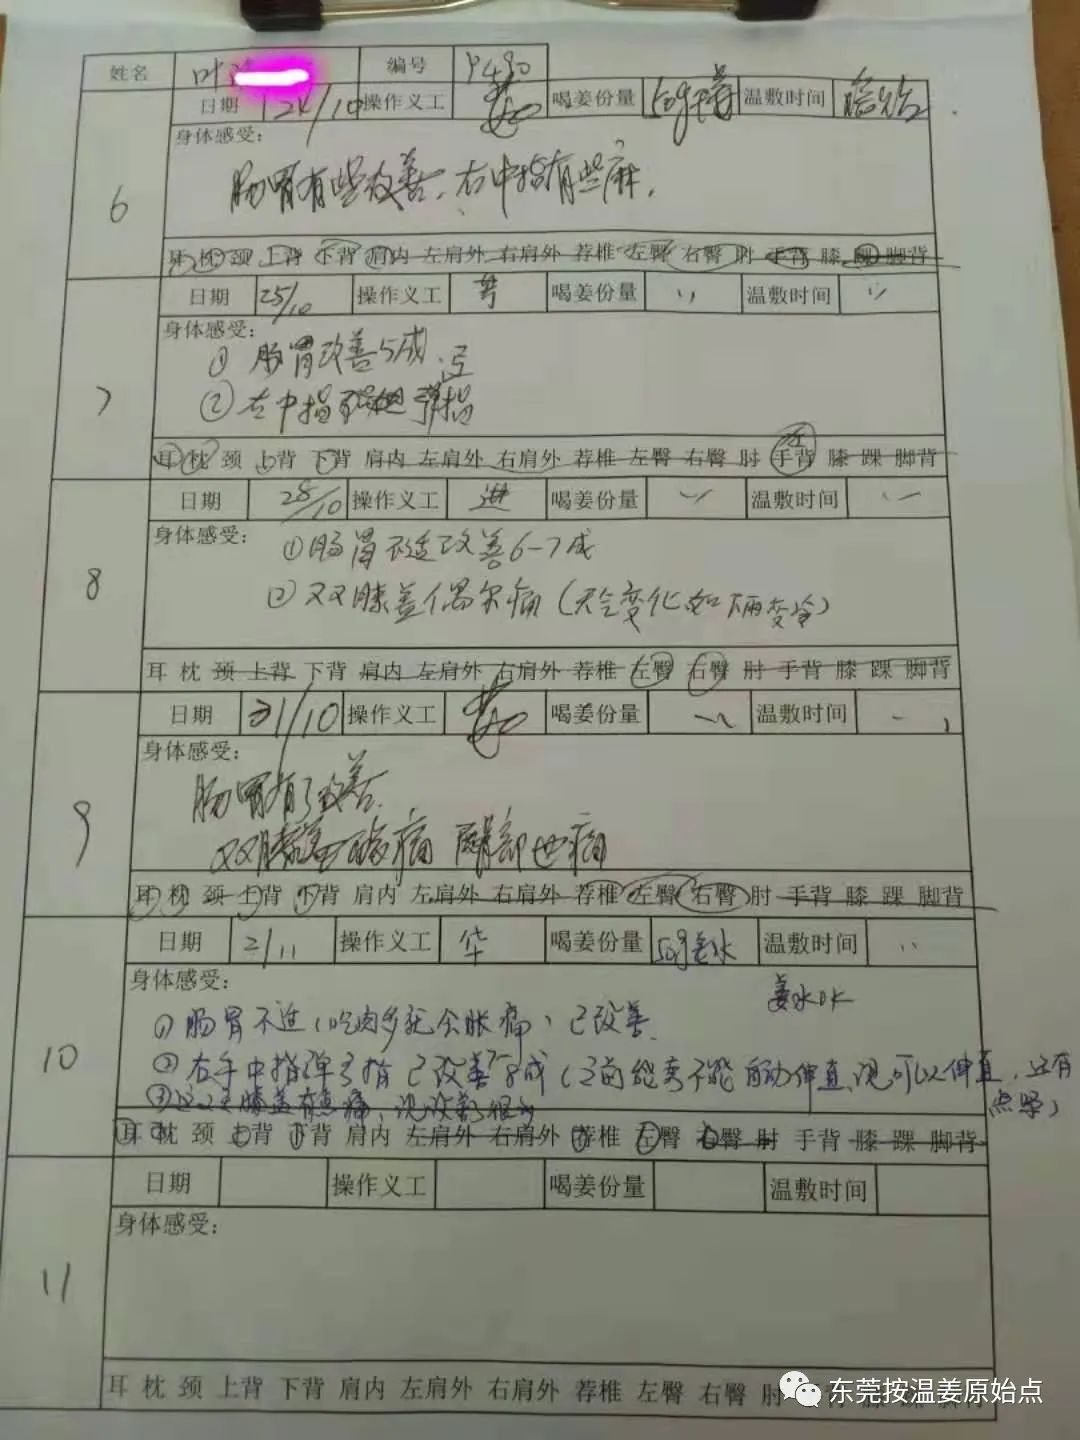 姓名 叶 编号 P490
日期 24/10 操作义工 喝姜份量 温敷时间
身体感受:
6
肠胃有些改善,右中指有些麻,
耳 枕 颈 上背 下背 肩内 左肩外 右肩外 荐椎 左臀 右臀 肘 手背 膝 踝 脚背
日期 25/10 操作义工 喝姜份量 〃 温敷时间 〃
身体感受:
7
① 肠胃改善5成
② 右中指 弹指
耳 枕 颈 上背 下背 肩内 左肩外 右肩外 荐椎 左臀 右臀 肘 手背 膝 踝 脚背
日期 28/10 操作义工 进 喝姜份量 〃 温敷时间 〃
身体感受:
8
①肠胃不适改善6-7成
②双膝盖偶尔痛(天气变化如下雨变冷)
耳 枕 颈 上背 下背 肩内 左肩外 右肩外 荐椎 左臀 右臀 肘 手背 膝 踝 脚背
日期 31/10 操作义工 喝姜份量 〃 温敷时间 〃
身体感受:
9
肠胃有了改善
双膝盖酸痛 臀部也痛
耳 枕 颈 上背 下背 肩内 左肩外 右肩外 荐椎 左臀 右臀 肘 手背 膝 踝 脚背
日期 2/11 操作义工 华 喝姜份量 50g姜水 温敷时间 〃
身体感受:
姜水OK
10
① 肠胃不适(吃肉多就会胀痛)已改善.
② 右手中指弹弓指已改善5成(之前 弯不能自动伸直,现可以伸直,还有
点紧)
③ 膝盖有点痛,现改善很多
耳 枕 颈 上背 下背 肩内 左肩外 右肩外 荐椎 左臀 右臀 肘 手背 膝 踝 脚背
日期 操作义工 喝姜份量 温敷时间
身体感受:
11
耳 枕 颈 上背 下背 肩内 左肩外 右肩外 荐椎 左臀 右臀 肘
东莞按温姜原始点